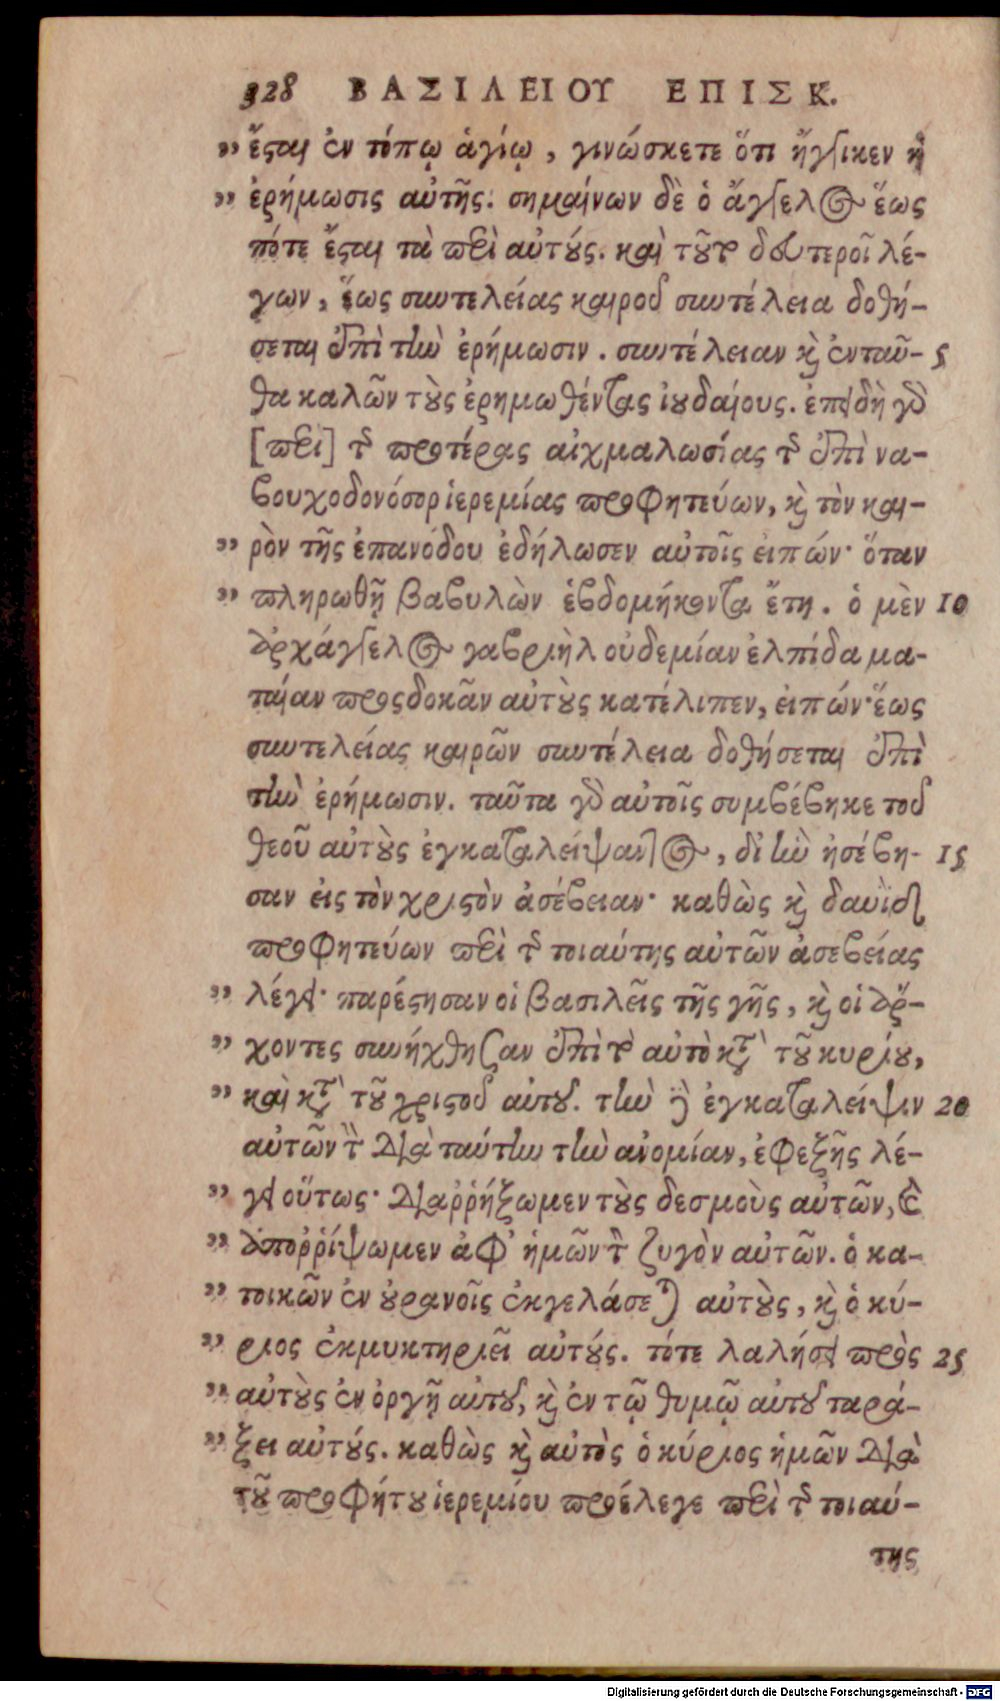 328 ΒΑΣΙΛΕΙΟΥ ΕΠΙΣΚ.
” ἔςαι ἐν τόπῳ ἁγίῳ, γινώσκετε ὅτι ἤγγικεν ἡ
” ἐρήμωσις αὐτῆς. σημαίνων δὲ ὁ ἄγγελος ἕως
πότε ἔςαι τὰ περὶ αὐτούς. καὶ τοῦτο δευτεροῖ λέ-
γων, ἕως συντελείας καιροῦ συντέλεια δοθή-
σεται ἐπὶ τὴν ἐρήμωσιν. συντέλειαν καὶ ἐνταῦ- 5
θα καλῶν τοὺς ἐρημωθέντας ἰουδαίους. ἐπειδὴ γὰρ
[περὶ] τῆς προτέρας αἰχμαλωσίας τῆς ἐπὶ να-
βουχοδονόσορ ἱερεμίας προφητεύων, καὶ τὸν και-
” ρὸν τῆς ἐπανόδου ἐδήλωσεν αὐτοῖς εἰπών· ὅταν
” πληρωθῇ βαβυλὼν ἑβδομήκοντα ἔτη. ὁ μὲν 10
ἀρχάγγελος γαβριὴλ οὐδεμίαν ἐλπίδα μα-
ταίαν προςδοκᾶν αὐτοὺς κατέλιπεν, εἰπών· ἕως
συντελείας καιρῶν συντέλεια δοθήσεται ἐπὶ
τὴν ἐρήμωσιν. ταῦτα γὰρ αὐτοῖς συμβέβηκε τοῦ
θεοῦ αὐτοὺς ἐγκαταλείψαντος, δι’ ἣν ἠσέβη- 15
σαν εἰς τὸν χριςὸν ἀσέβειαν· καθὼς καὶ δαυὶδ
προφητεύων περὶ τῆς τοιαύτης αὐτῶν ἀσεβείας
” λέγει· παρέςησαν οἱ βασιλεῖς τῆς γῆς, καὶ οἱ ἄρ-
” χοντες συνήχθησαν ἐπὶ τὸ αὐτὸ κατὰ τοῦ κυρίου,
” καὶ κατὰ τοῦ χριςοῦ αὐτοῦ. τὴν δὲ ἐγκατάλειψιν 20
αὐτῶν τὴν διὰ ταύτην τὴν ἀνομίαν, ἐφεξῆς λέ-
” γει οὕτως· διαῤῥήξωμεν τοὺς δεσμοὺς αὐτῶν, καὶ
” ἀποῤῥίψωμεν ἀφ’ ἡμῶν τὸν ζυγὸν αὐτῶν. ὁ κα-
” τοικῶν ἐν οὐρανοῖς ἐκγελάσεται αὐτοὺς, καὶ ὁ κύ-
” ριος ἐκμυκτηριεῖ αὐτούς. τότε λαλήσει πρὸς 25
” αὐτοὺς ἐν ὀργῇ αὐτοῦ, καὶ ἐν τῷ θυμῷ αὐτοῦ ταρά-
” ξει αὐτούς. καθὼς καὶ αὐτὸς ὁ κύριος ἡμῶν διὰ
τοῦ προφήτου ἱερεμίου προέλεγε περὶ τῆς τοιαύ-
της
Digitalisierung gefördert durch die Deutsche Forschungsgemeinschaft - DFG